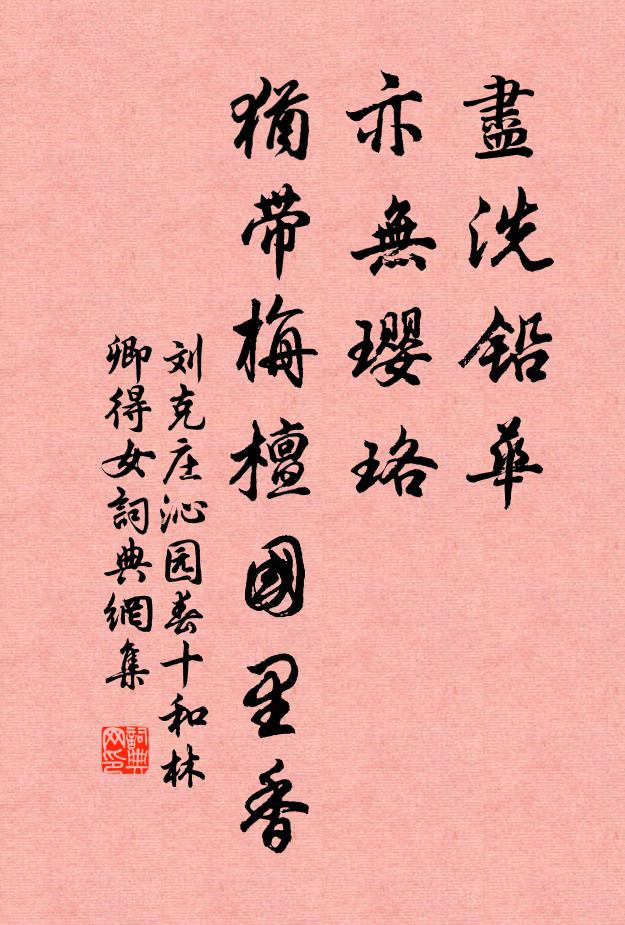 盡洗鉛華
亦無瓔珞
猶带梅檀國里香
刘克庄沁园春十和林
卿得女詞典網集
詞典网印